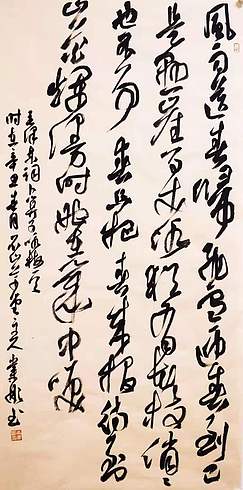 風雨送春歸飛雪迎春到已
是懸崖百丈冰猶有花枝俏〻
也不争春只把春來報待到
山花爛漫时她在叢中唉
毛澤东詞卜算子咏梅一首
时在辛丑春月
书